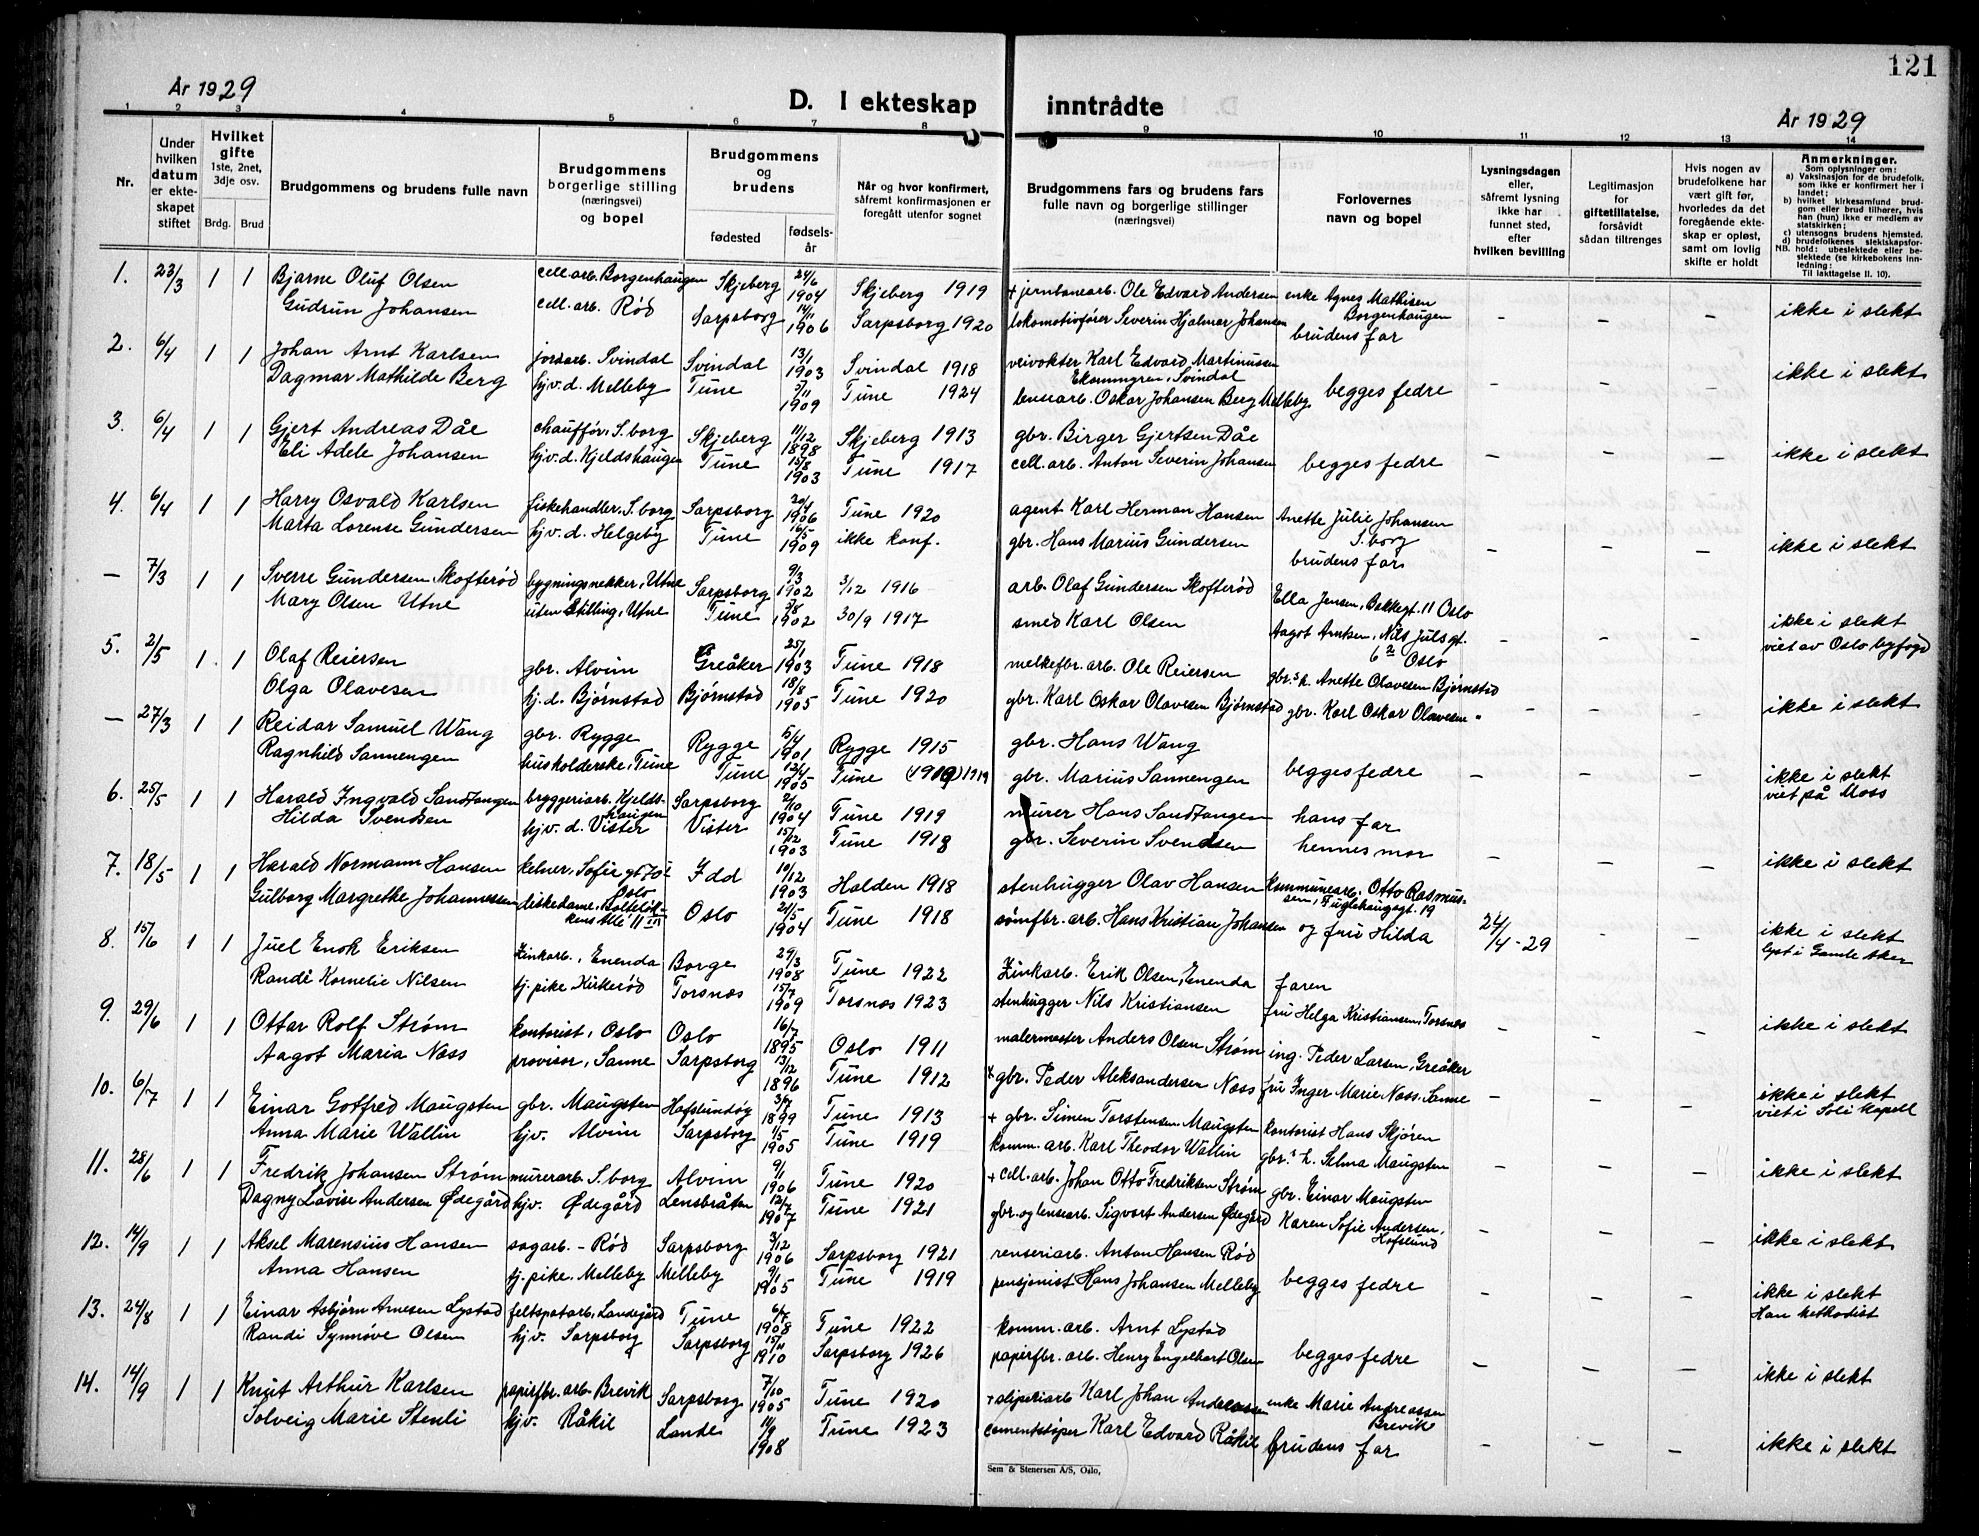 121
År 1929
D. I ekteskap inntrådte
År 1929
1 2 3 4 5 6 7 8 9 10 11 12 13 14
Nr.
Under hvilken datum er ekteskapet stiftet
Hvilket gifte 1ste, 2net, 3dje osv.
Brdg. Brud
Brudgommens og brudens fulle navn
Brudgommens borgerlige stilling (næringsvei) og bopel
Brudgommens og brudens
fødested
fødselsår
Når og hvor konfirmert, såfremt konfirmasjonen er foregått utenfor sognet
Brudgommens fars og brudens fars fulle navn og borgerlige stillinger (næringsvei)
Forlovernes navn og bopel
Lysningsdagen eller, såfremt lysning ikke har funnet sted, efter hvilken bevilling
Legitimasjon for giftetillatelse, forsåvidt sådan tiltrenges
Hvis nogen av brudefolkene har vært gift før, hvorledes da det foregående ekteskap er opløst, samt om lovlig skifte er holdt
Anmerkninger.
Som oplysninger om:
a) Vaksinasjon for de brudefolk, som ikke er konfirmert her i landet;
b) hvilket kirkesamfund brudgom eller brud tilhører, hvis han (hun) ikke er medlem av statskirken;
c) utensogns brudens hjemsted.
d) brudefolkenes slektskapsforhold: ubeslektede eller beslektede (se kirkebokens innledning;
NB.
Til iakttagelse II. 10).
1. 23/3 1 1 Bjarne Oluf Olsen cell.arb. Borgenhaugen Skjeberg 24/6 1904 Skjeberg 1919 + jernbanearb. Ole Edvard Andersen enke Agnes Mathisen Borgenhaugen
Gudrun Johansen cell. arb. Rød Sarpsborg 14/11 1906 Sarpsborg 1920 lokomotivfører Severin Hjalmar Johansen brudens far - - - ikke i slekt
2. 6/4 1 1 Johan Arnt Karlsen jordarb. Svindal Svindal 13/1 1903 Svindal 1918 veivokter Karl Edvard Martinussen Ekornngren, Svindal
Dagmar Mathilde Berg hjv. d. Melleby Tune 5/11 1909 Tune 1924 lensearb. Oskar Johansen Berg Melleby begges fedre - - - ikke i slekt
3. 6/4 1 1 Gjert Andreas Dåe chauffør, S.borg Skjeberg 11/12 1898 Skjeberg 1913 gbr. Birger Gjertsen Dåe
Eli Adele Johansen hjv. d. Kjeldshaugen Tune 15/8 1903 Tune 1917 cell. arb. Anton Severin Johansen begges fedre - - - ikke i slekt
4. 6/4 1 1 Harry Osvald Karlsen fiskehandler, S.borg Sarpsborg 20/4 1906 Tune 1920 agent Karl Herman Hansen Anette Julie Johansen S.borg
Marta Lorense Gundersen hjv. d. Helgeby Tune 16/5 1909 ikke konf. gbr. Hans Marius Gundersen brudens far - - - ikke i slekt
— 7/3 1 1 Sverre Gundersen Skofterød bygningssnekker, Utne Sarpsborg 9/3 1902 3/12 1916 arb. Olaf Gundersen Skofterød Ella Jensen, Bakkegt. 11 Oslo
Mary Olsen Utne uten stilling, Utne Tune 3/8 1902 30/9 1917 smed Karl Olsen Aagot Arntsen, Nils Juls gt. 6 2 Oslo - - - ikke i slekt viet av Oslo byfogd
5. 2/5 1 1 Olaf Reiersen gbr. Alvim Greåker 25/1 1903 Tune 1918 melkefbr. arb. Ole Reiersen gbr.s h. Anette Olavesen Bjørnstad
Olga Olavesen hj. d. Bjørnstad Bjørnstad 18/8 1905 Tune 1920 gbr. Karl Oskar Olavesen Bjørnstad gbr. Karl Oskar Olavesen " - - - ikke i slekt
— 27/3 1 1 Reidar Samuel Wang gbr. Rygge Rygge 5/4 1901 Rygge 1915 gbr. Hans Wang
Ragnhild Sannengen husholderske, Tune Tune 12/4 1905 Tune 1919 gbr. Marius Sannengen begges fedre - - - ikke i slekt viet på Moss
6. 25/5 1 1 Harald Ingvald Sandtangen bryggeriarb. Kjeldshaugen Sarpsborg 2/10 1904 Tune 1919 murer Hans Sandtangen hans far
Hilda Svendsen hjv. d. Vister Vister 15/12 1903 Tune 1918 gbr. Severin Svendsen hennes mor - - - ikke i slekt
7. 18/5 1 1 Harald Normann Hansen kelner, Sofie gt 70 Oslo Idd 10/12 1903 Halden 1918 stenhugger Olav Hansen kommunearb. Otto Rasmussen, Fuglehauggt. 19
Gulborg Margrethe Johannessen diskedame, Oslo 21/5 1904 Tune 1918 sömfbr. arb. Hans Kristian Johansen og fru Hilda 24/4-29 - - ikke i slekt lyst i Gamle Aker
8. 15/6 1 1 Juel Enok Eriksen Zinkarb., Enenda Borge 29/3 1908 Tune 1922 Zinkarb. Erik Olsen, Enenda faren
Randi Kornelie Nilsen tj. pike Kirkerød Torsnæs 15/7 1909 Torsnæs 1923 stenhugger Nils Kristiansen fru Helga Kristiansen, Torsnæs - - - ikke i slekt
9. 29/6 1 1 Ottar Rolf Strøm kontorist, Oslo Oslo 16/7 1895 Oslo 1911 malermester Anders Olsen Strøm ing. Peder Larsen, Greåker
Aagot Maria Næss provisor, Sanne Sarpsborg 13/12 1896 Tune 1912 + gbr. Peder Aleksandersen Næss fru Inger Marie Næss, Sanne - - - ikke i slekt viet i Soli kapell
10. 6/7 1 1 Einar Gotfred Maugsten gbr. Maugsten Hafslundøy 3/7 1899 Tune 1913 + gbr. Simen Torstensen, Maugsten kontorist Hans Skjøren
Anna Marie Wallin hjv. Alvim Sarpsborg 1/5 1905 Tune 1919 komm. arb. Karl Theodor Wallin gbr.s h. Selma Maugsten - - - ikke i slekt
11. 28/6 1 1 Fredrik Johansen Strøm murerarb. S.borg Alvim 9/1 1906 Tune 1920 + cell. arb. Johan Otto Fredriksen Strøm gbr. Einar Maugsten
Dagny Lovise Andersen Ødegård hjv. Ødegård Lensbråten 12/7 1907 Tune 1921 gbr. og lensearb. Sigvart Andersen Ødegård Karen Sofie Andersen, Hafslund - - - ikke i slekt
12. 14/9 1 1 Aksel Marensius Hansen sagarb. - Rød Sarpsborg 3/12 1906 Sarpsborg 1921 renseriarb. Anton Hansen Rød
Anna Hansen tj. pike. Melleby Melleby 9/1 1905 Tune 1919 pensjonist Hans Johansen Melleby begges fedre - - - ikke i slekt Han methodist
13. 24/8 1 1 Einar Asbjørn Arnesen Lystad feltspatarb. Landegård Tune 6/7 1908 Tune 1922 komm. arb. Arnt Lystad
Randi Synnøve Olsen hjv. Sarpsborg Sarpsborg 15/11 1910 Sarpsborg 1926 papirfbr. arb. Henry Engelhart Olsen begges fedre - - - ikke i slekt
14. 14/9 1 1 Knut Arthur Karlsen papirfbr. arb. Brevik Sarpsborg 7/10 1905 Tune 1920 + sliperiarb Karl Johan Andreassen enke Marie Andreassen Brevik
Solveig Marie Stenli hjv. Råkil Lande 11/9 1908 Tune 1923 cementstøper Karl Edvard Råkil brudens far - - - ikke i slekt
Sem & Stenersen A/S, Oslo,